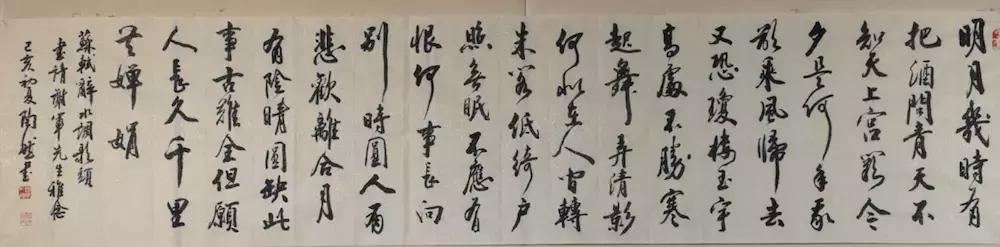 明月幾時有
把酒問青天不
知天上宮闕今
夕是何年我
欲乘風歸去
又恐瓊樓玉宇
高處不勝寒
起舞弄清影
何似在人間轉
朱閣低綺户
照無眠不應有
恨何事長向
别時圓人有
悲歡離合月
有陰晴圓缺此
事古難全但願
人長久千里
共嬋娟
蘇軾辭水調歌頭
書請謝軍先生雅念
己亥初夏書